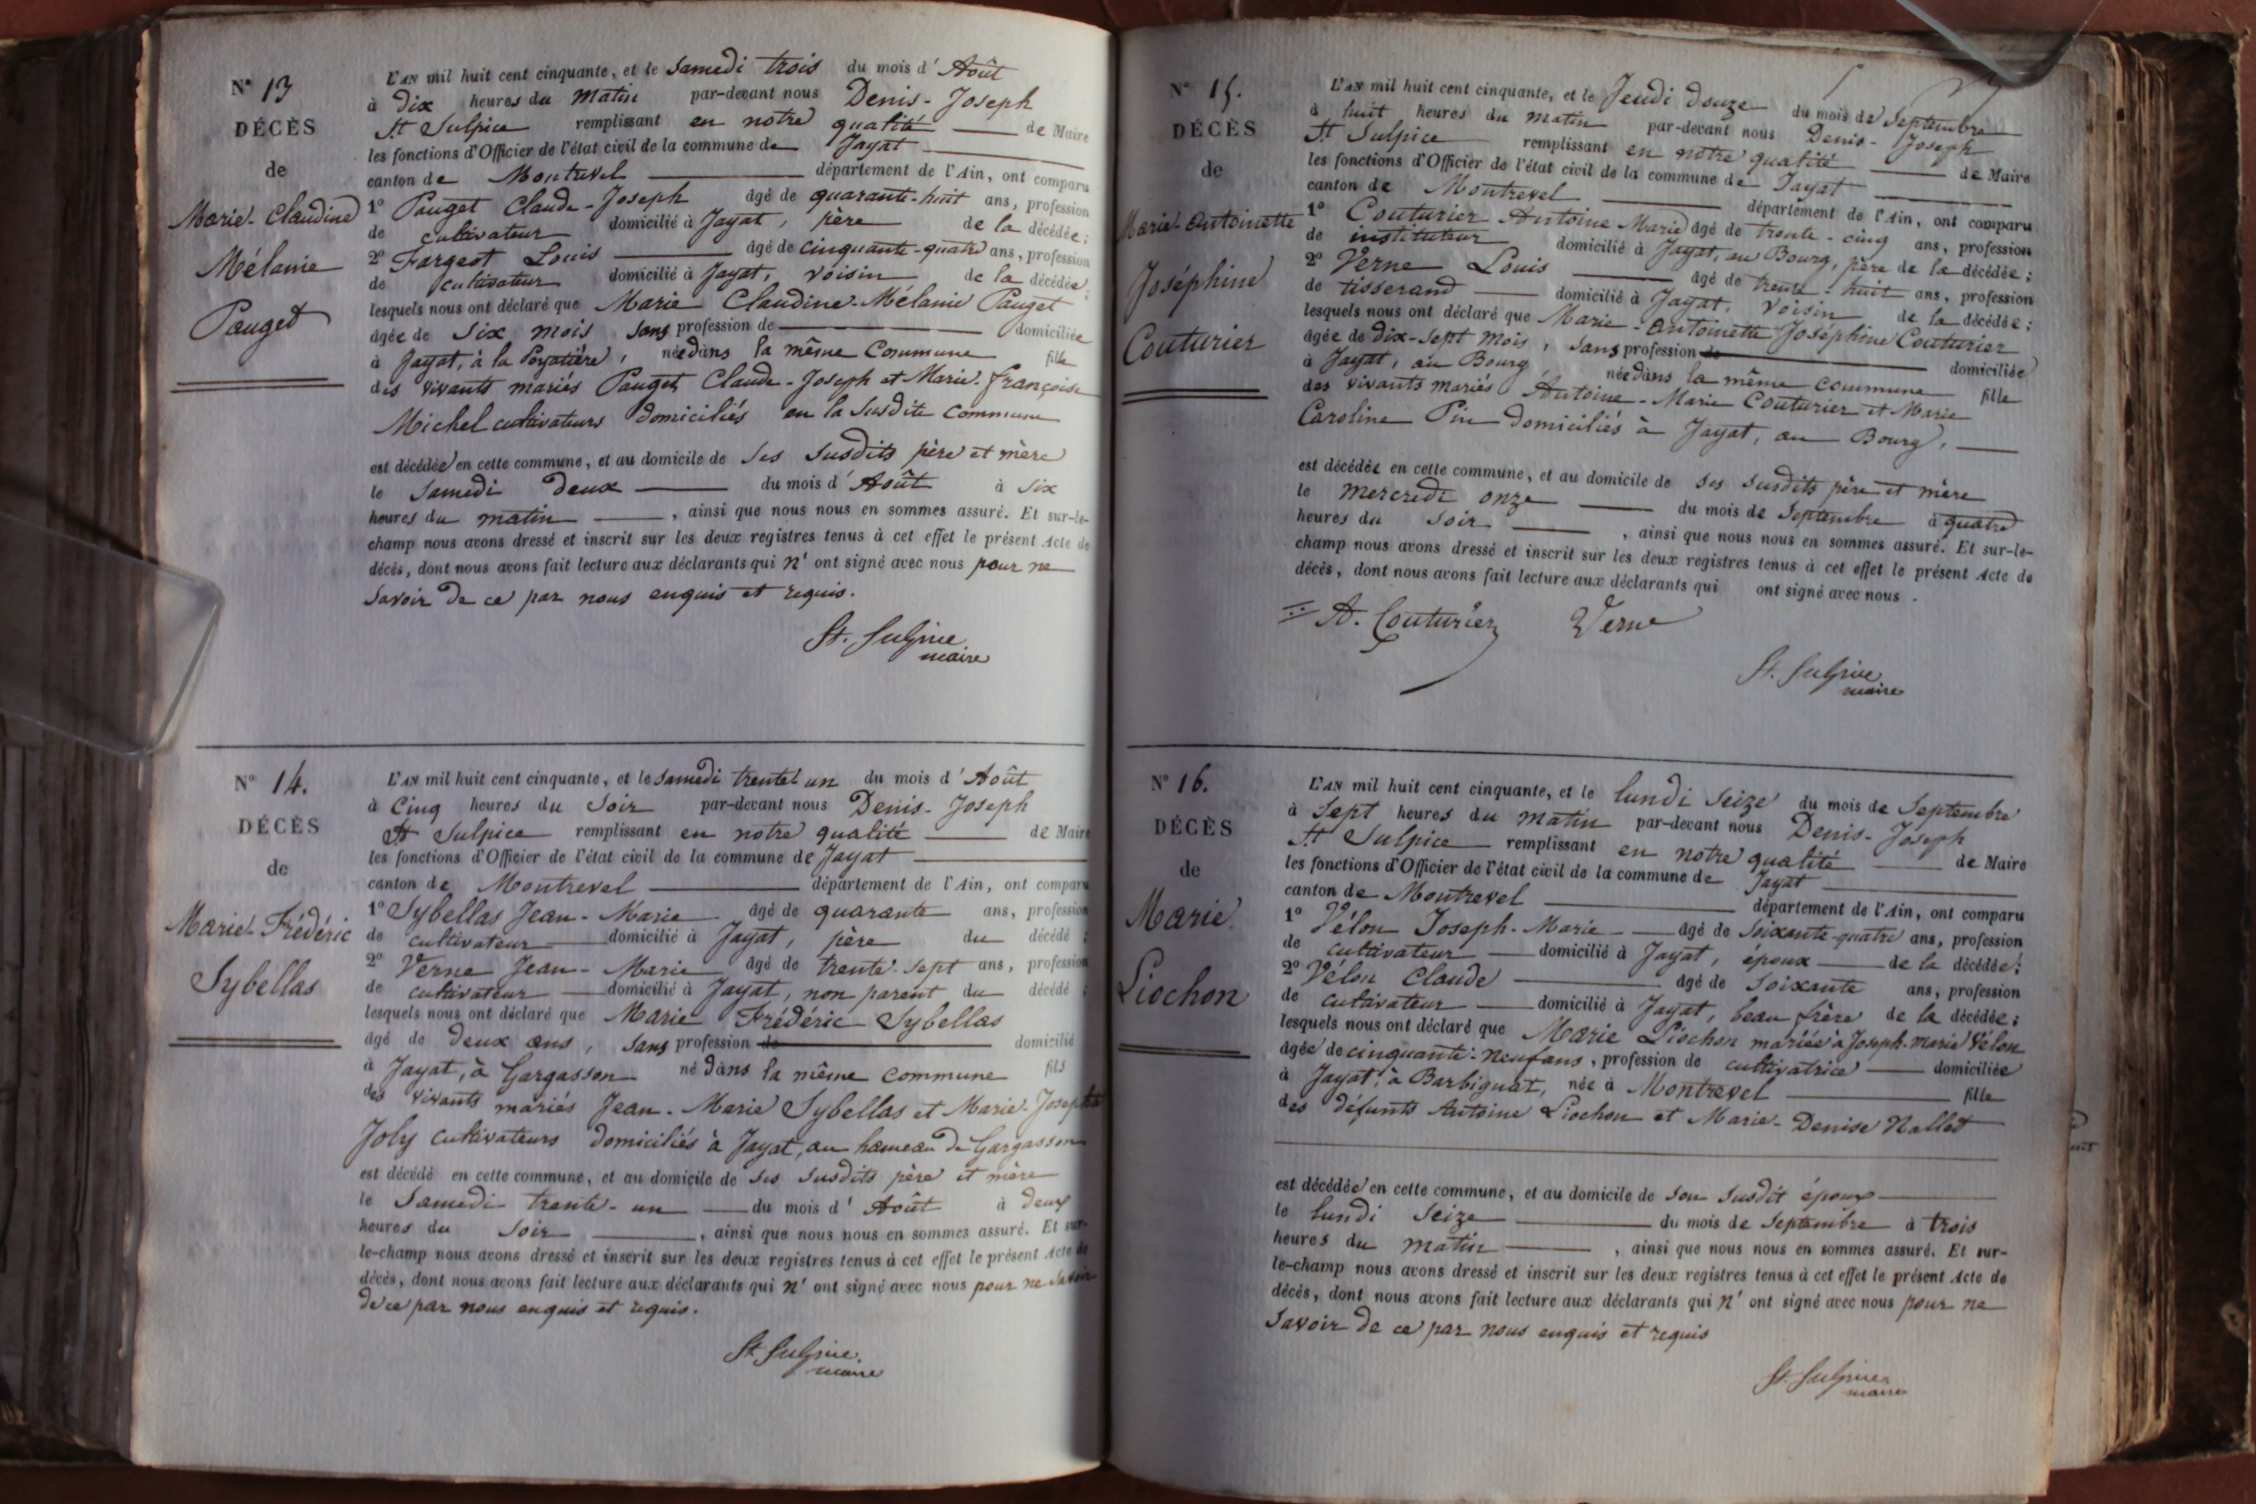 N° 13
DÉCÈS
de
Marie-Claudine
Mélanie
Pauget
L'AN mil huit cent cinquante, et le samedi trois du mois d'Août
à dix heures du matin par-devant nous Denis-Joseph
St Sulpice remplissant en notre qualité de Maire
les fonctions d'Officier de l'état civil de la commune de Jayat
canton de Montrevel département de l'Ain, ont comparu
1° Pauget Claude-Joseph âgé de quarante-huit ans, profession
de cultivateur domicilié à Jayat, père de la décédée;
2° Fargeot Louis âgé de cinquante-quatre ans, profession
de cultivateur domicilié à Jayat, voisin de la décédée;
lesquels nous ont déclaré que Marie Claudine-Mélanie Pauget
âgée de six mois sans profession de domiciliée
à Jayat, à la née dans la même commune fille
des vivants mariés Pauget Claude-Joseph et Marie-françoise
Michel cultivateurs domiciliés en la susdite commune
est décédée en cette commune, et au domicile de ses susdits père et mère
le samedi deux du mois d'Août à six
heures du matin, ainsi que nous nous en sommes assuré. Et sur-le-
champ nous avons dressé et inscrit sur les deux registres tenus à cet effet le présent Acte de
décès, dont nous avons fait lecture aux déclarants qui n'ont signé avec nous pour ne
savoir de ce par nous enquis et requis.
St. Sulpice
maire
N° 14.
DÉCÈS
de
Marie-Frédéric
Sybellas
L'AN mil huit cent cinquante, et le samedi trente un du mois d'Août
à cinq heures du soir par-devant nous Denis-Joseph
St Sulpice remplissant en notre qualité de Maire
les fonctions d'Officier de l'état civil de la commune de Jayat
canton de Montrevel département de l'Ain, ont comparu
1° Sybellas Jean-Marie âgé de quarante ans, profession
de cultivateur domicilié à Jayat, père du décédé;
2° Verne Jean-Marie âgé de trente-sept ans, profession
de cultivateur domicilié à Jayat, non parent du décédé;
lesquels nous ont déclaré que Marie Frédéric Sybellas
âgé de deux ans, sans profession de domicilié
à Jayat, à Gargasson né dans la même commune fils
des vivants mariés Jean-Marie Sybellas et Marie-Josephte
Joly cultivateurs domiciliés à Jayat, au hameau de Gargasson
est décédé en cette commune, et au domicile de ses susdits père et mère
le samedi trente-un du mois d'Août à deux
heures du soir, ainsi que nous nous en sommes assuré. Et sur-
le-champ nous avons dressé et inscrit sur les deux registres tenus à cet effet le présent Acte de
décès, dont nous avons fait lecture aux déclarants qui n'ont signé avec nous pour ne savoir
de ce par nous enquis et requis.
St. Sulpice
maire
N° 15.
DÉCÈS
de
Marie-Antoinette
Joséphine
Couturier
L'AN mil huit cent cinquante, et le Jeudi douze du mois de Septembre
à huit heures du matin par-devant nous Denis-Joseph
St Sulpice remplissant en notre qualité de Maire
les fonctions d'Officier de l'état civil de la commune de Jayat
canton de Montrevel département de l'Ain, ont comparu
1° Couturier Antoine Marie âgé de trente-cinq ans, profession
de instituteur domicilié à Jayat, au Bourg, père de la décédée;
2° Verne Louis âgé de trente-huit ans, profession
de tisserand domicilié à Jayat, voisin de la décédée;
lesquels nous ont déclaré que Marie-Antoinette Joséphine Couturier
âgée de dix-sept mois, sans profession de domiciliée
à Jayat, au Bourg, née dans la même commune fille
des vivants mariés Antoine-Marie Couturier et Marie
Caroline Pin domiciliés à Jayat, au Bourg,
est décédée en cette commune, et au domicile de ses susdits père et mère
le mercredi onze du mois de Septembre à quatre
heures du soir, ainsi que nous nous en sommes assuré. Et sur-le-
champ nous avons dressé et inscrit sur les deux registres tenus à cet effet le présent Acte de
décès, dont nous avons fait lecture aux déclarants qui ont signé avec nous.
A. Couturier Verne
St. Sulpice
maire
N° 16.
DÉCÈS
de
Marie
Liochon
L'AN mil huit cent cinquante, et le lundi seize du mois de Septembre
à sept heures du matin par-devant nous Denis-Joseph
St Sulpice remplissant en notre qualité de Maire
les fonctions d'Officier de l'état civil de la commune de Jayat
canton de Montrevel département de l'Ain, ont comparu
1° Vélon Joseph-Marie âgé de soixante-quatre ans, profession
de cultivateur domicilié à Jayat, époux de la décédée;
2° Vélon Claude âgé de soixante ans, profession
de cultivateur domicilié à Jayat, beau frère de la décédée;
lesquels nous ont déclaré que Marie Liochon mariée à Joseph-marie Vélon
âgée de cinquante-neuf ans, profession de cultivatrice domiciliée
à Jayat, à Barbignat, née à Montrevel fille
des défunts Antoine Liochon et Marie-Denise Nallet
est décédée en cette commune, et au domicile de son susdit époux
le lundi seize du mois de Septembre à trois
heures du matin, ainsi que nous nous en sommes assuré. Et sur-
le-champ nous avons dressé et inscrit sur les deux registres tenus à cet effet le présent Acte de
décès, dont nous avons fait lecture aux déclarants qui n'ont signé avec nous pour ne
savoir de ce par nous enquis et requis
St. Sulpice
maire